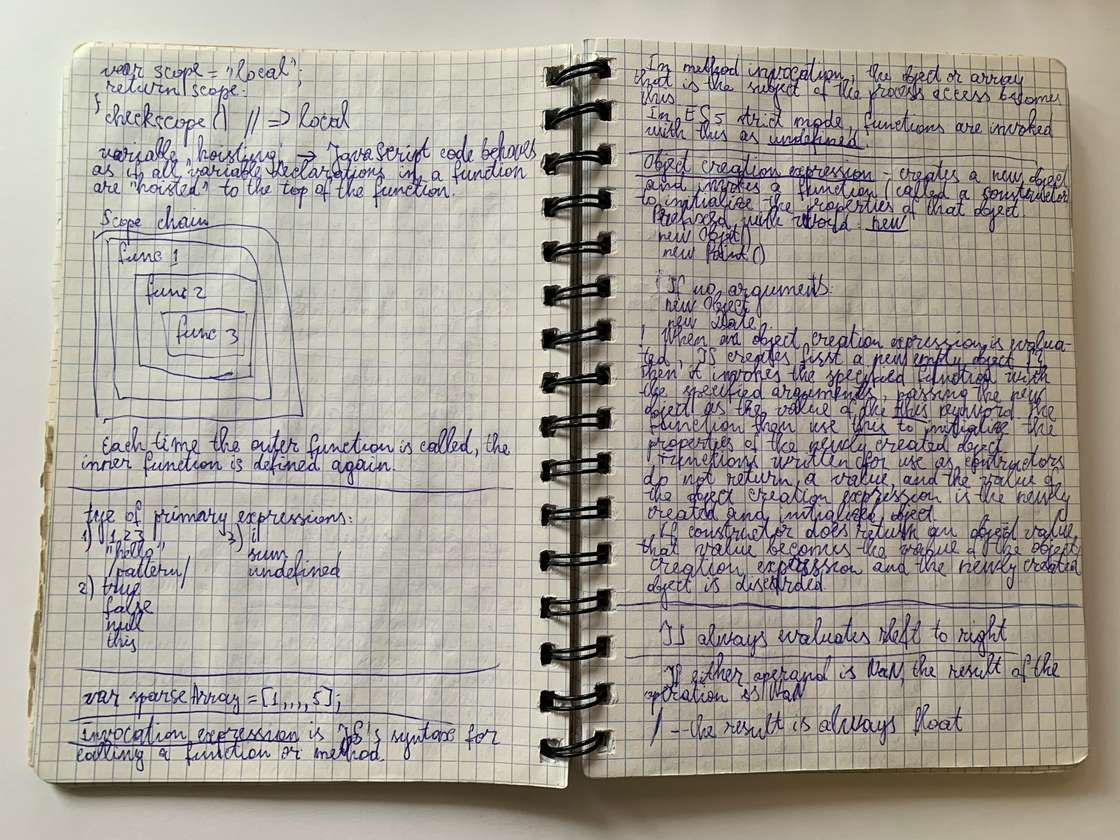 var scope = "local";
return scope;
}
checkscope() // => local
variable "hoisting" → JavaScript code behaves
as if all variable declarations in a function
are "hoisted" to the top of the function.
Scope chain
func 1
func 2
func 3
Each time the outer function is called, the
inner function is defined again.
tye of primary expressions:
1) 1.23 3) i
"hello" sum
/pattern/ undefined
2) true
false
null
this
var sparseArray = [1,,,,5];
invocation expression is JS's syntax for
calling a function or method.
In method invocation, the object or array
that is the subject of the process access becomes
this
In ES5 strict mode, functions are invoked
with this as undefined.
Object creation expression - creates a new object
and invokes a function (called a constructor
to initialize the properties of that object.
Prefixed with world new
new Object()
new Point()
If no arguments:
new Object
new Date
! When an object creation expression is evalua-
ted, JS creates first a new empty object {}
then it invokes the specified function with
the specified arguments, passing the new
object as the value of the this keyword. The
function then use this to initialize the
properties of the newly created object
Functions written for use as contructors
do not return a value, and the value of
the object creation expression is the newly
created and initialized object
If constructor does return an object value,
that value becomes the value of the object
creation expression and the newly created
object is discarded.
JS always evaluates left to right
If either operand is NaN, the result of the
operation is NaN
/ -- the result is always float